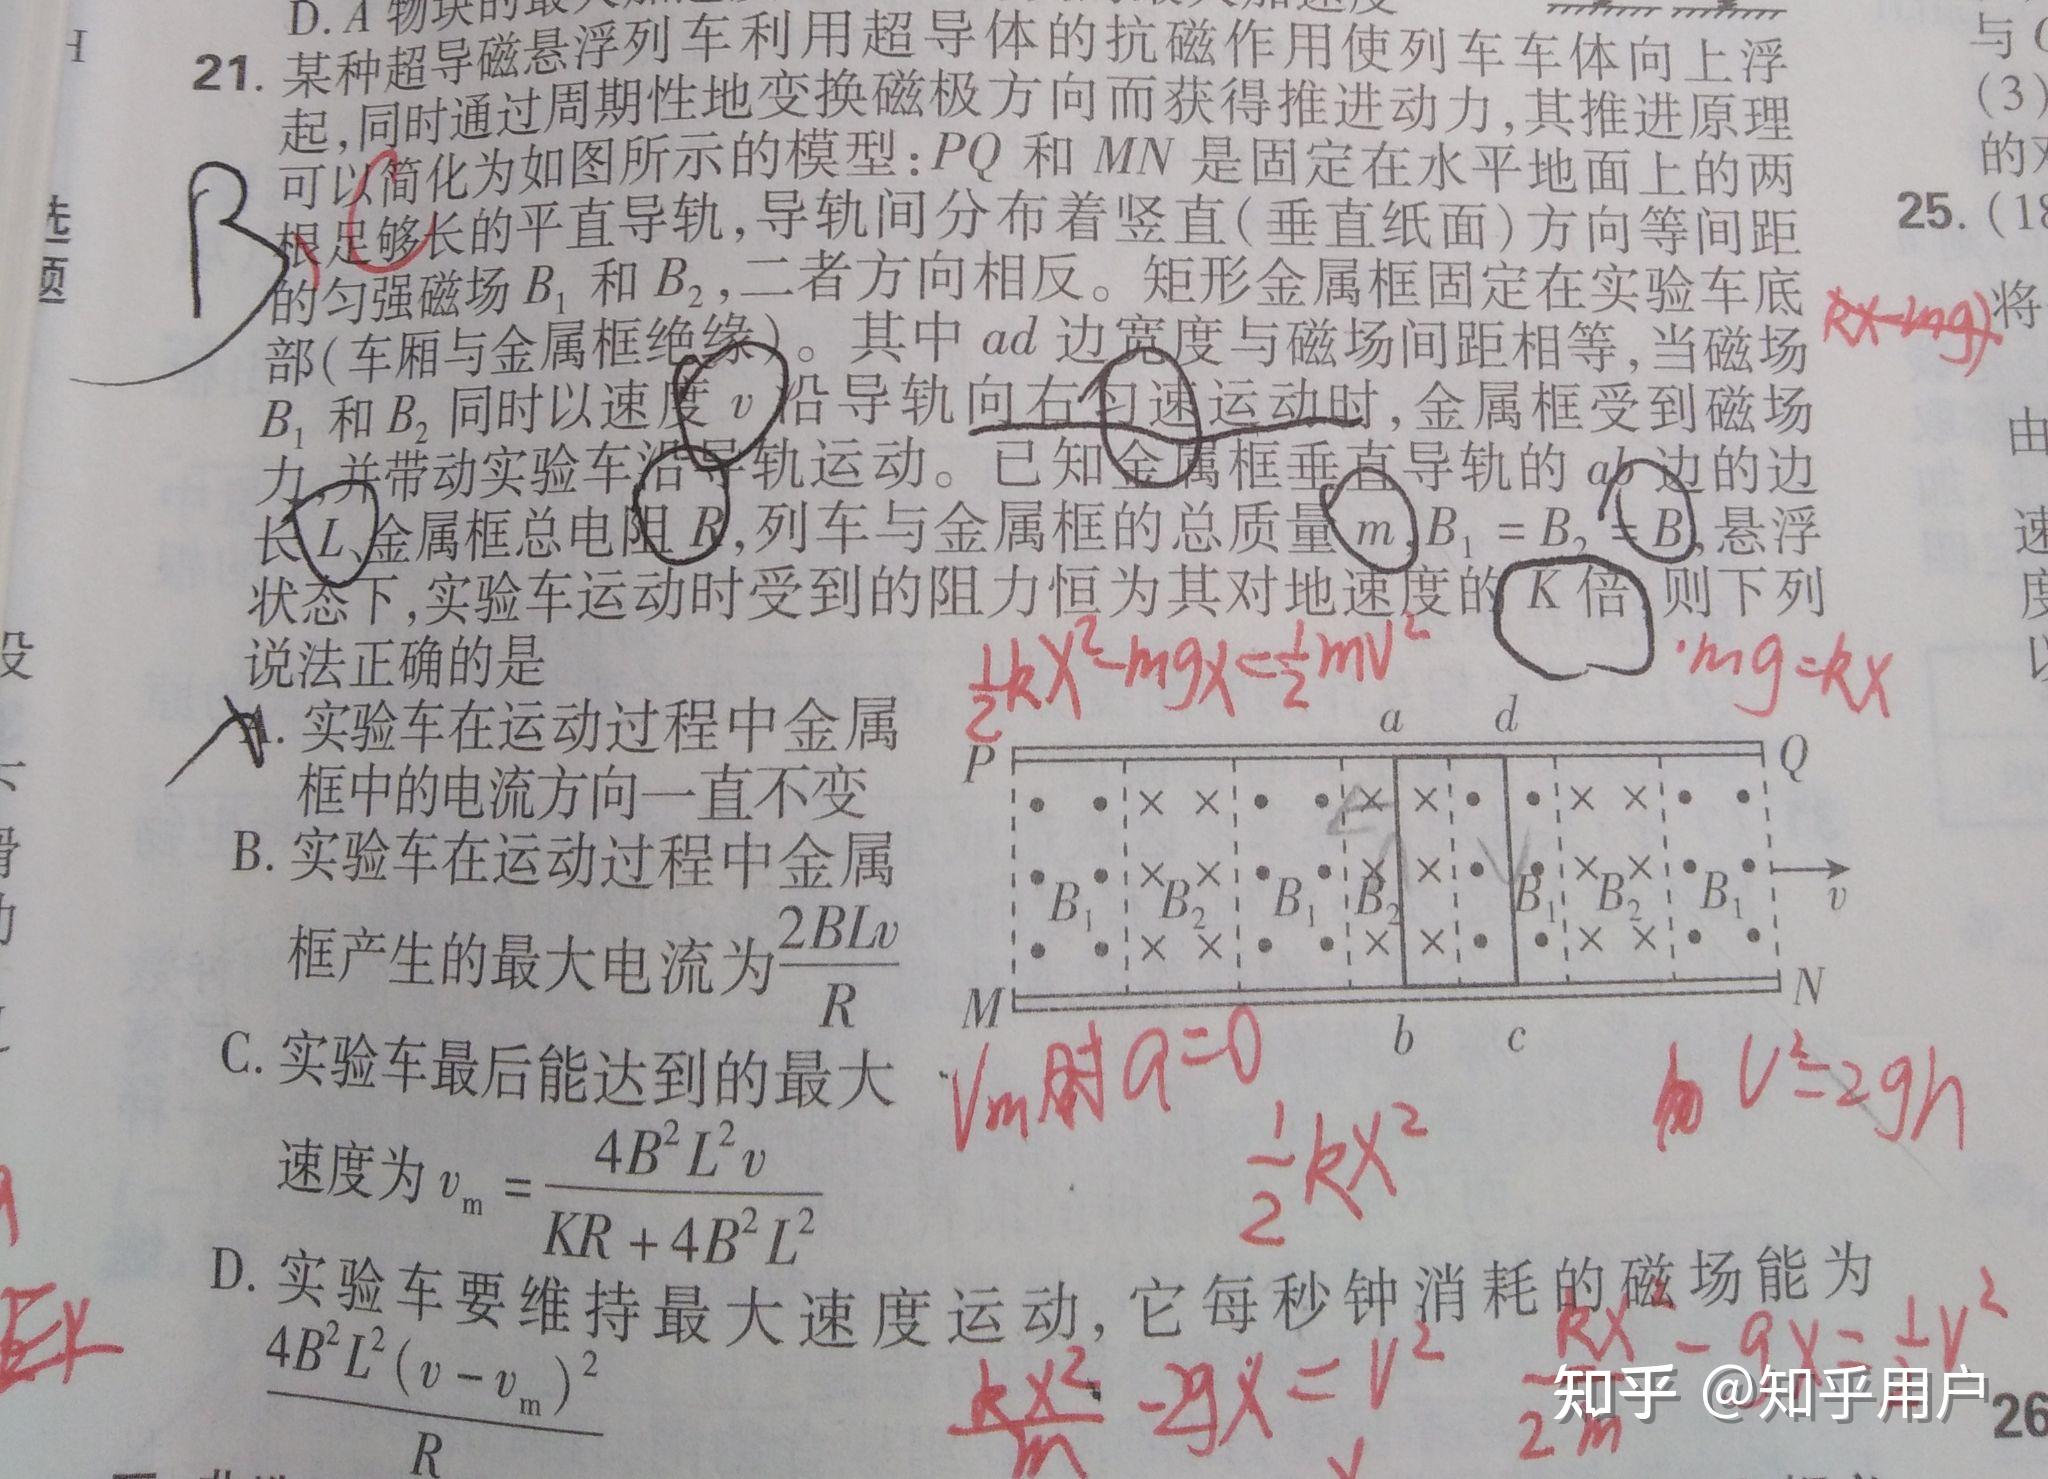 D. A 物块的最大加速度
21. 某种超导磁悬浮列车利用超导体的抗磁作用使列车车体向上浮
起,同时通过周期性地变换磁极方向而获得推进动力,其推进原理
可以简化为如图所示的模型:PQ 和 MN 是固定在水平地面上的两
根足够长的平直导轨,导轨间分布着竖直(垂直纸面)方向等间距
的匀强磁场 B₁ 和 B₂,二者方向相反。矩形金属框固定在实验车底
部(车厢与金属框绝缘)。其中 ad 边宽度与磁场间距相等,当磁场
B₁ 和 B₂ 同时以速度 v 沿导轨向右匀速运动时,金属框受到磁场
力,并带动实验车沿导轨运动。已知金属框垂直导轨的 ab 边的边
长 L、金属框总电阻 R,列车与金属框的总质量 m,B₁ = B₂ = B,悬浮
状态下,实验车运动时受到的阻力恒为其对地速度的 K 倍 则下列
说法正确的是
A. 实验车在运动过程中金属
框中的电流方向一直不变
B. 实验车在运动过程中金属
框产生的最大电流为 2BLv/R
C. 实验车最后能达到的最大
速度为 vₘ = 4B²L²v/(KR + 4B²L²)
D. 实验车要维持最大速度运动,它每秒钟消耗的磁场能为
4B²L²(v - vₘ)²/R
B、C
kx-mg)
½kx²-mgx=½mv²
mg=kx
a d
P Q
B₁ B₂ B₁ B₂ B₁ B₂ B₁ v
M N
b c
Vm时a=0
V²=2gh
½kx²
kx²/m -2gx = V²
kx²/2m - gx = ½V²
知乎 @知乎用户
与
(3)
的
25. (18
将
由
速
度
以
26
选
题
没